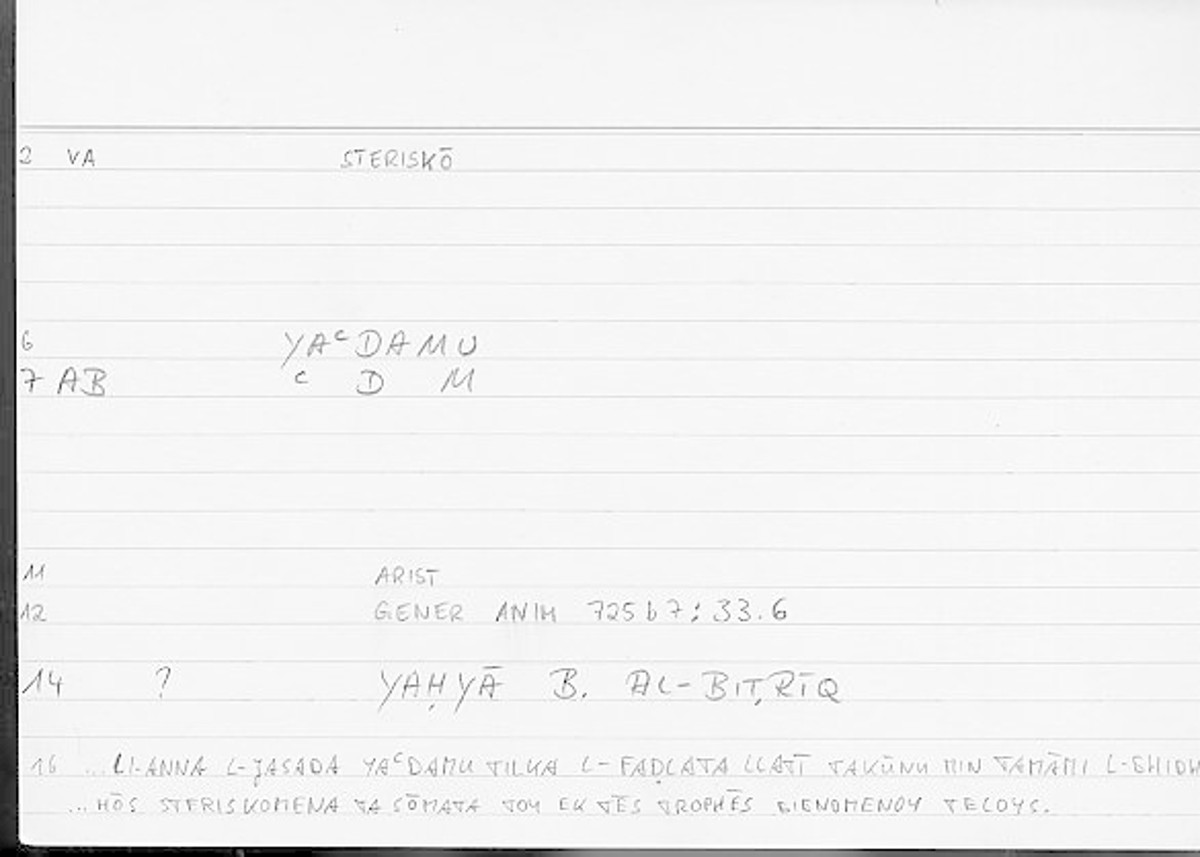 2 VA STERISKŌ
6 YAᶜDAMU
7 AB ᶜ D M
11 ARIST
12 GENER ANIM 725b7:33.6
14 ? YAḤYĀ B. AL-BIṬRĪQ
16 ...LI-ANNA L-JASADA YAᶜDAMU TILKA L-FAḌLATA LLATĪ TAKŪNU MIN TAMĀMI
...HŌS STERISKOMENA TA SŌMATA TOY EK TĒS TROPHĒS GIENOMENOY TELOYS.